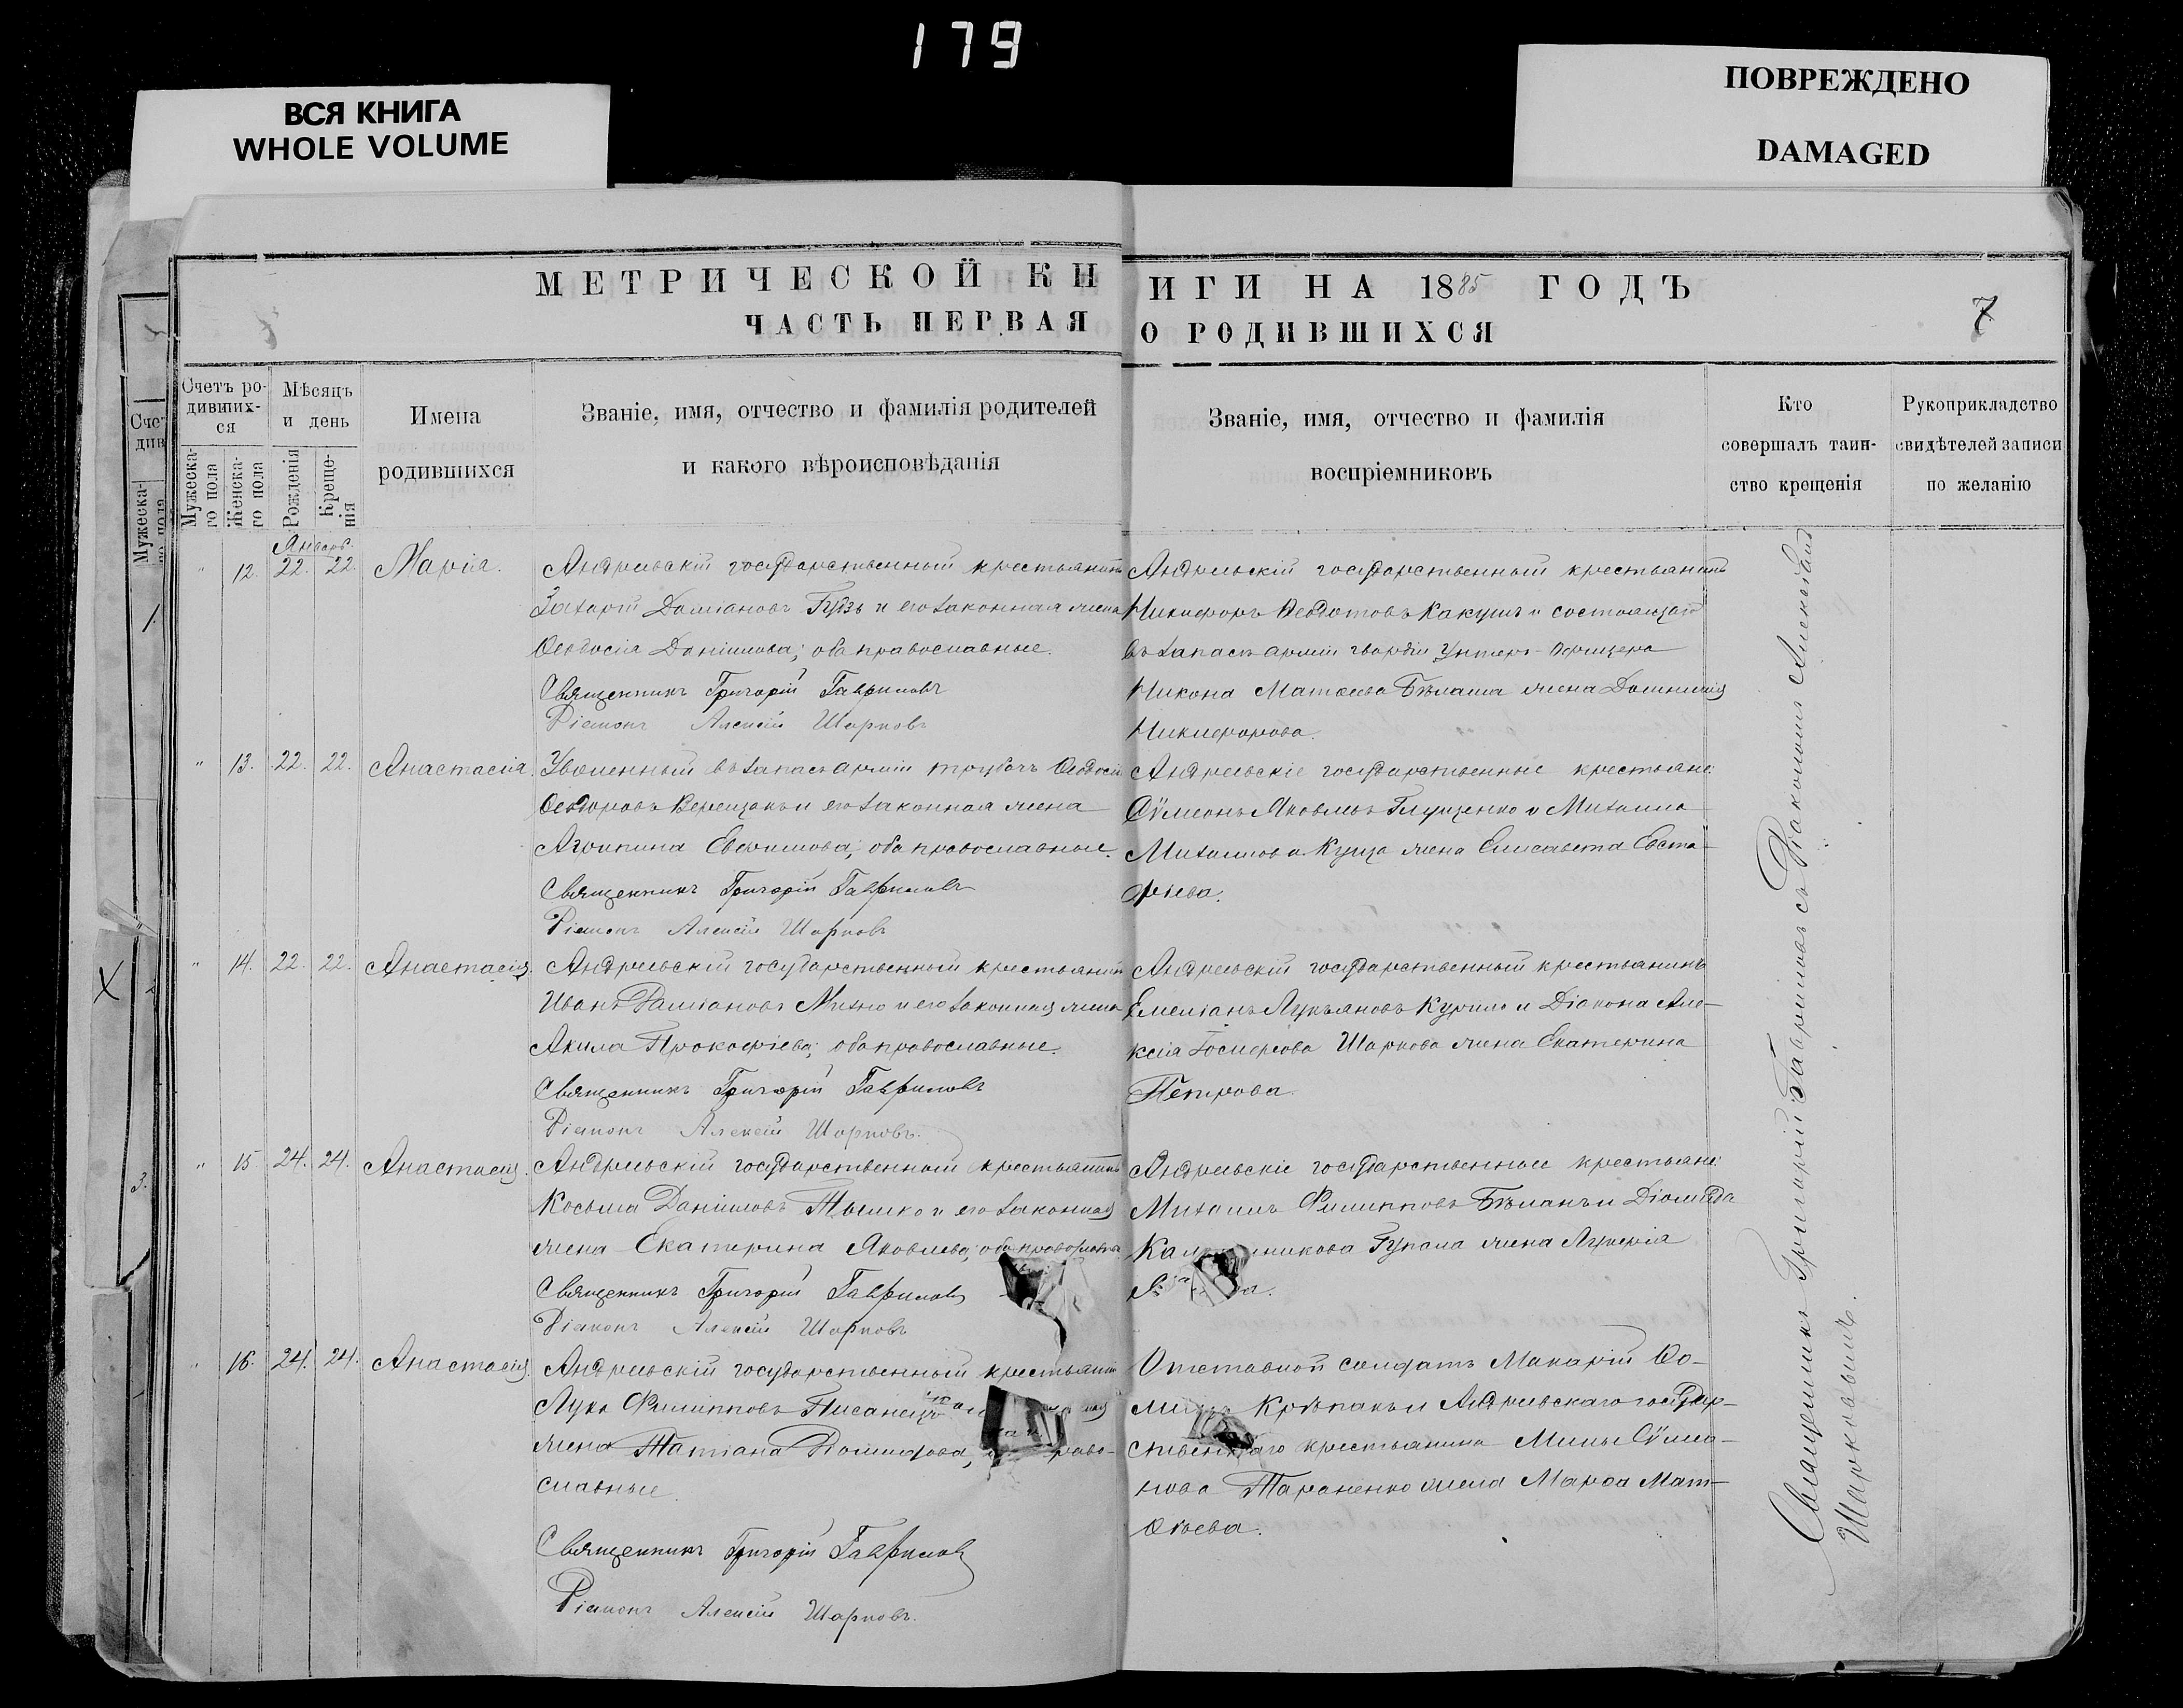 179
ВСЯ КНИГА
WHOLE VOLUME
ПОВРЕЖДЕНО
DAMAGED
МЕТРИЧЕСКОЙ КНИГИ НА 1885 ГОДЪ
7
ЧАСТЬ ПЕРВАЯ О РОДИВШИХСЯ
Счетъ родившихся
Мужескаго пола
Женскаго пола
Мѣсяцъ и день
Рожденія
Крещенія
Имена
родившихся
Званіе, имя, отчество и фамилія родителей
и какого вѣроисповѣданія
Званіе, имя, отчество и фамилія
воспріемниковъ
Кто
совершалъ таин-
ство крещенія
Рукоприкладство
свидѣтелей записи
по желанію
Январь.
" 12. 22. 22. Марія.
Андреевскій государственный крестьянинъ
Захарій Даміановъ Гудзь и его законная жена
Ѳеодосія Даніилова; оба православные.
Священникъ Григорій Гавриловъ
Діаконъ Алексій Шарковъ
Андреевскій государственный крестьянинъ
Никифоръ Ѳедотовъ Какушъ и состоящаго
въ запасѣ арміи гвардіи Унтеръ-Офицера
Никона Матѳеева Бѣлаша жена Домникія
Никифорова.
" 13. 22. 22. Анастасія.
Уволенный въ запасъ арміи трубачъ Ѳеодосій
Ѳеодоровъ Верещакъ и его законная жена
Агрипина Евфимова; оба православные.
Священникъ Григорій Гавриловъ
Діаконъ Алексій Шарковъ
Андреевскіе государственные крестьяне:
Сѵмеонъ Яковлевъ Глущенко и Михаила
Михаилова Куща жена Елисавета Евста-
фіева.
" 14. 22. 22. Анастасія.
Андреевскій государственный крестьянинъ
Иванъ Даміановъ Михно и его законная жена
Акила Прокофіева; оба православные.
Священникъ Григорій Гавриловъ
Діаконъ Алексій Шарковъ.
Андреевскій государственный крестьянинъ
Емеліанъ Лукьяновъ Курило и Діакона Але-
ксія Шаркова жена Екатерина
Петрова.
" 15 24. 24. Анастасія.
Андреевскій государственный крестьянинъ
Косьма Даніиловъ и его законная
жена Екатерина Яковлева; оба
Священникъ Григорій Гавриловъ
Діаконъ Алексій Шарковъ
Андреевскіе государственные крестьяне:
Михаилъ Филипповъ Бѣланъ и Діомида
Гупала жена Лукерія
" 16. 24. 24. Анастасія.
Андреевскій государственный крестьянинъ
Лука Филипповъ Писанецъ
жена Татіана
славные.
Священникъ Григорій Гавриловъ
Діаконъ Алексій Шарковъ.
Отставной солдатъ Макарій Ѳо-
Крѣпакъ и Андреевскаго государ-
ственнаго крестьянина Мины Сѵмео-
нова Тараненко жена Марѳа Мат-
ѳеева.
Священникъ Григорій Гавриловъ съ Діакономъ Алексѣемъ
Шарковымъ.